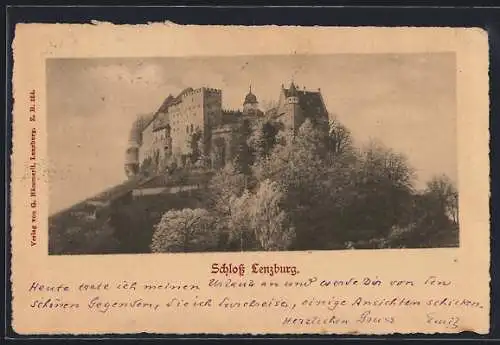 Verlag von G. Hämmerli, Lenzburg. E. B. 164.
Schloß Lenzburg.
Heute trete ich meinen Urlaub an und werde Dir von den
schönen Gegenden, die ich durchreise, einige Ansichten schicken.
Herzlichen Gruss Emil